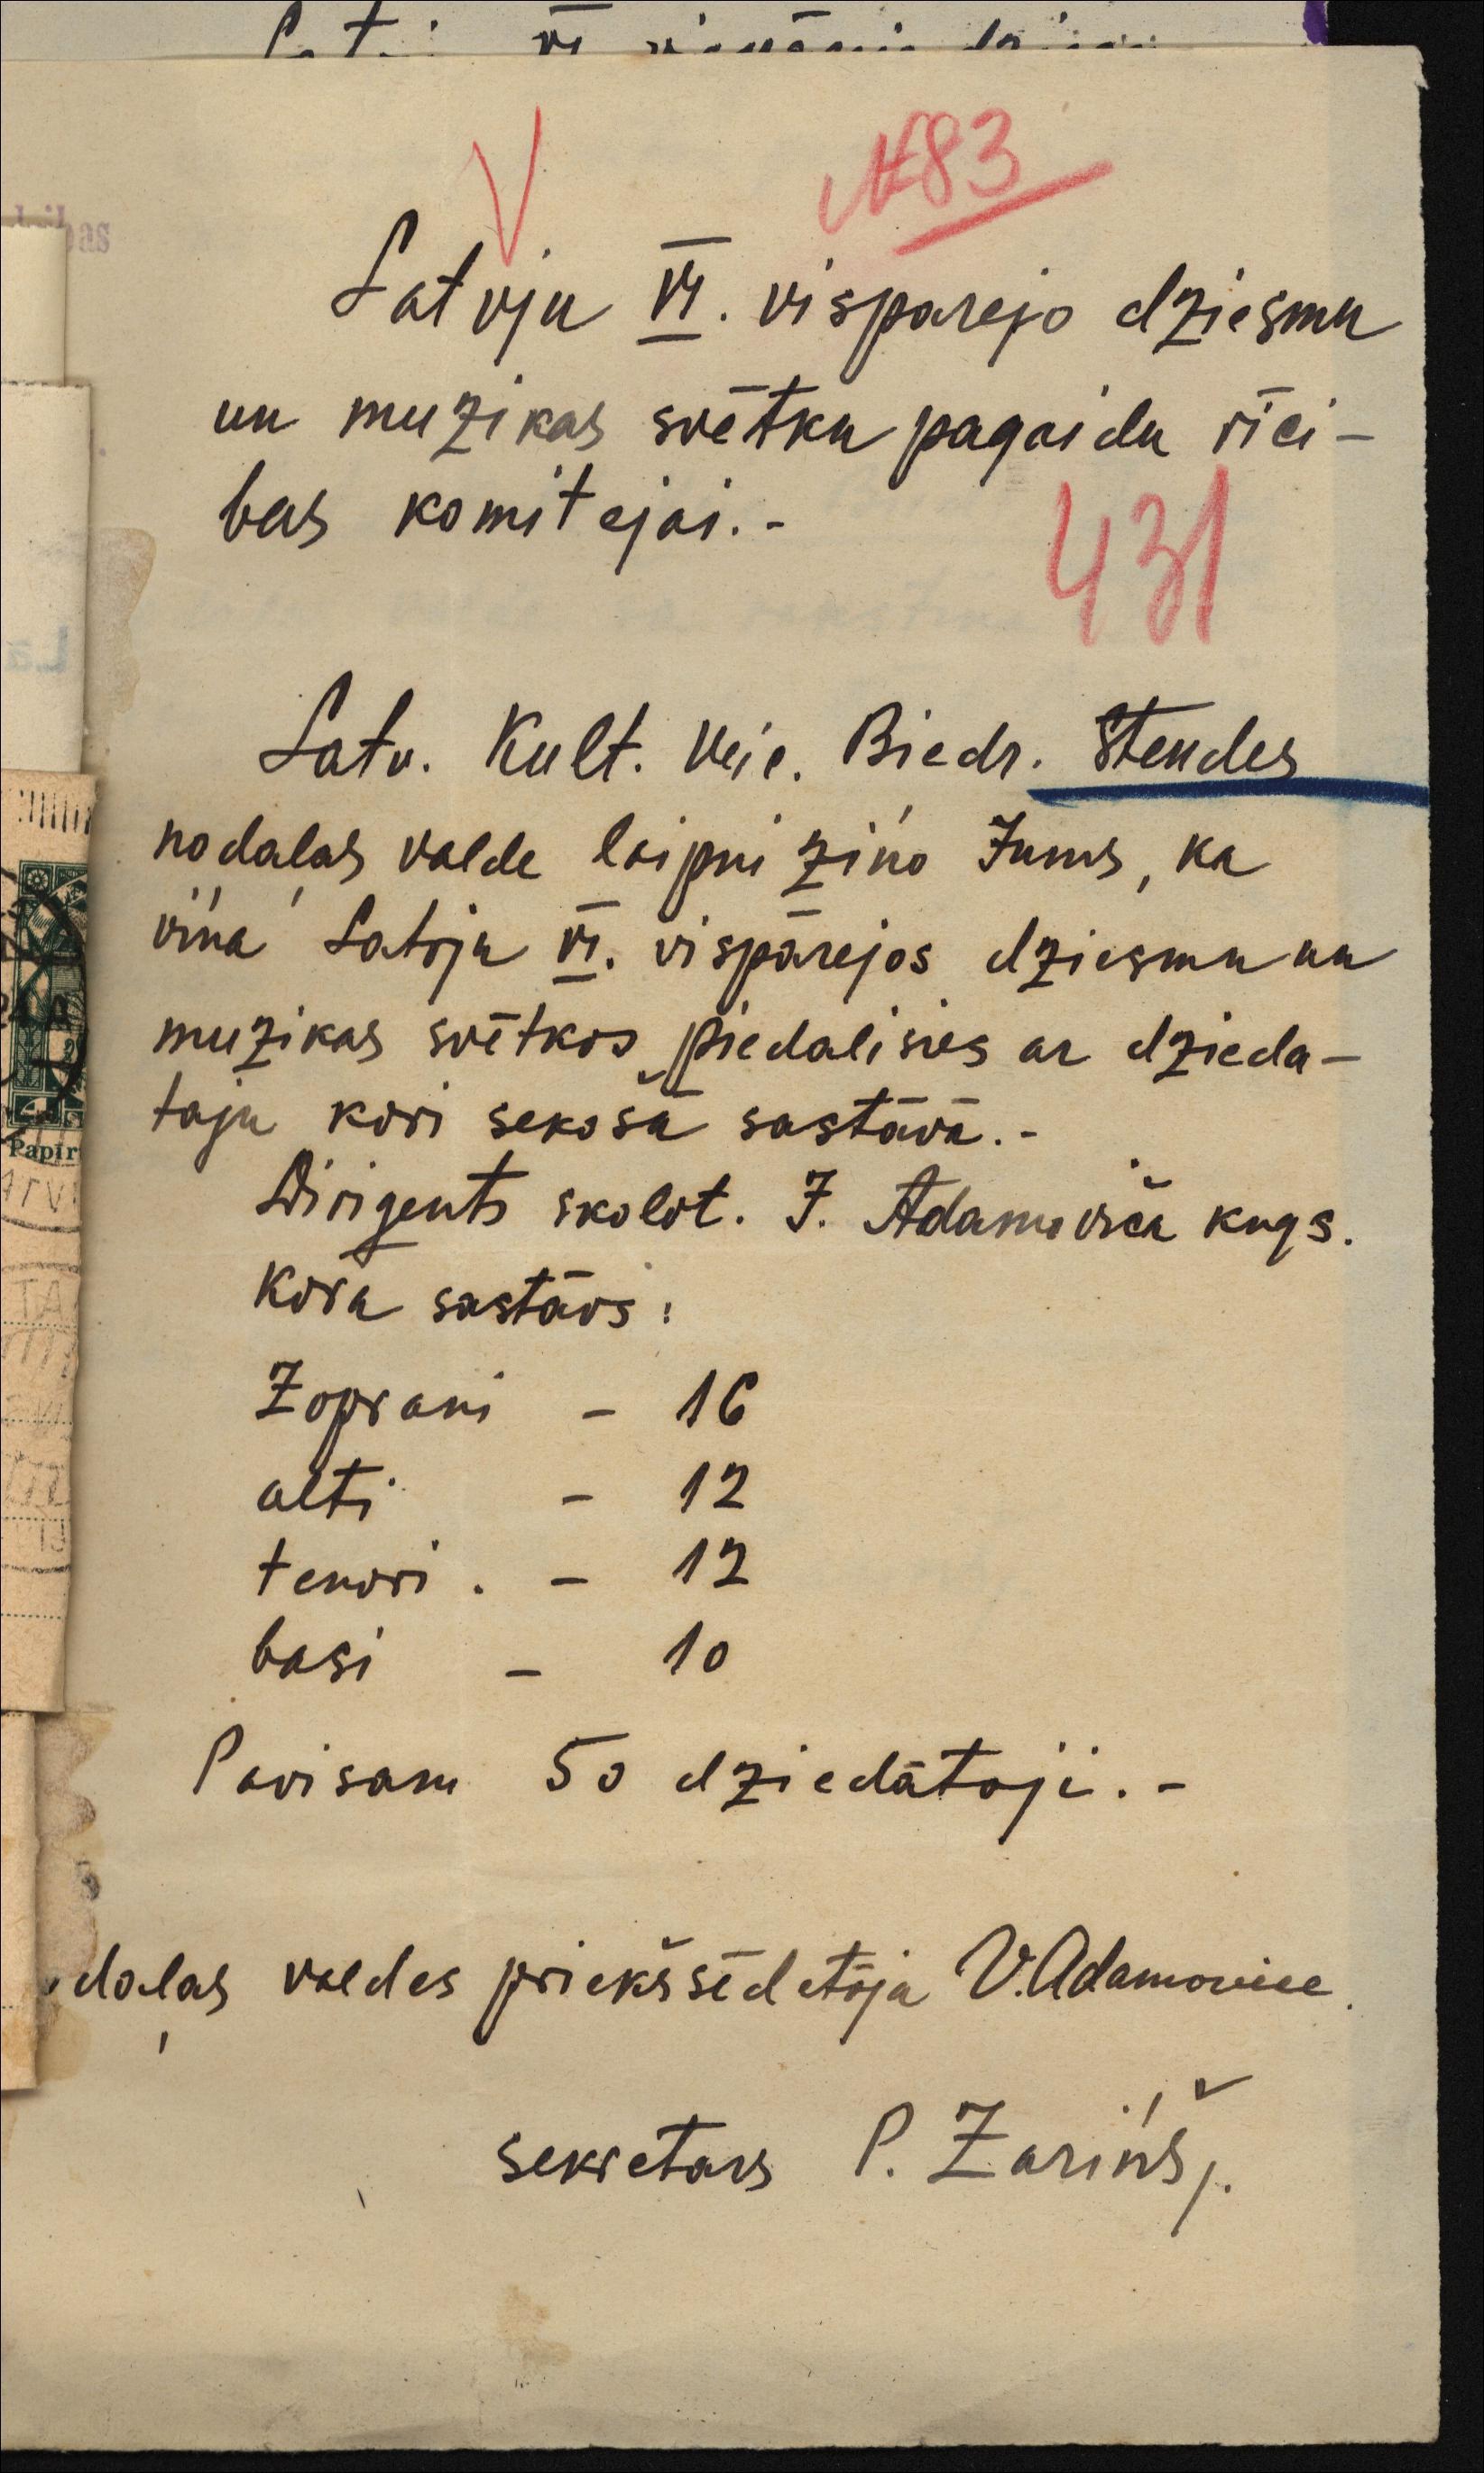 V
№83
Latvju VI. visparejo dziesmu
un muzikas svētku pagaidu rīci-
bas komitejai.-
431
Latv. Kult. Veic. Biedr. Stendes
nodalas valde laipni ziņo Jums, ka
viņa Latvju VI. vispārejos dziesmu un
muzikas svētkos piedalisies ar dzieda-
taju kori sekošā sastāvā.-
Dirigents skolot. J. Adamoviča kngs.
Kora sastāvs:
Zoprani - 16
alti - 12
tenori. - 12
basi - 10
Pavisam 50 dziedātaji.-
daļas valdes priekšsēdetāja V. Adamovice.
sekretars P. Zariņš
Papir